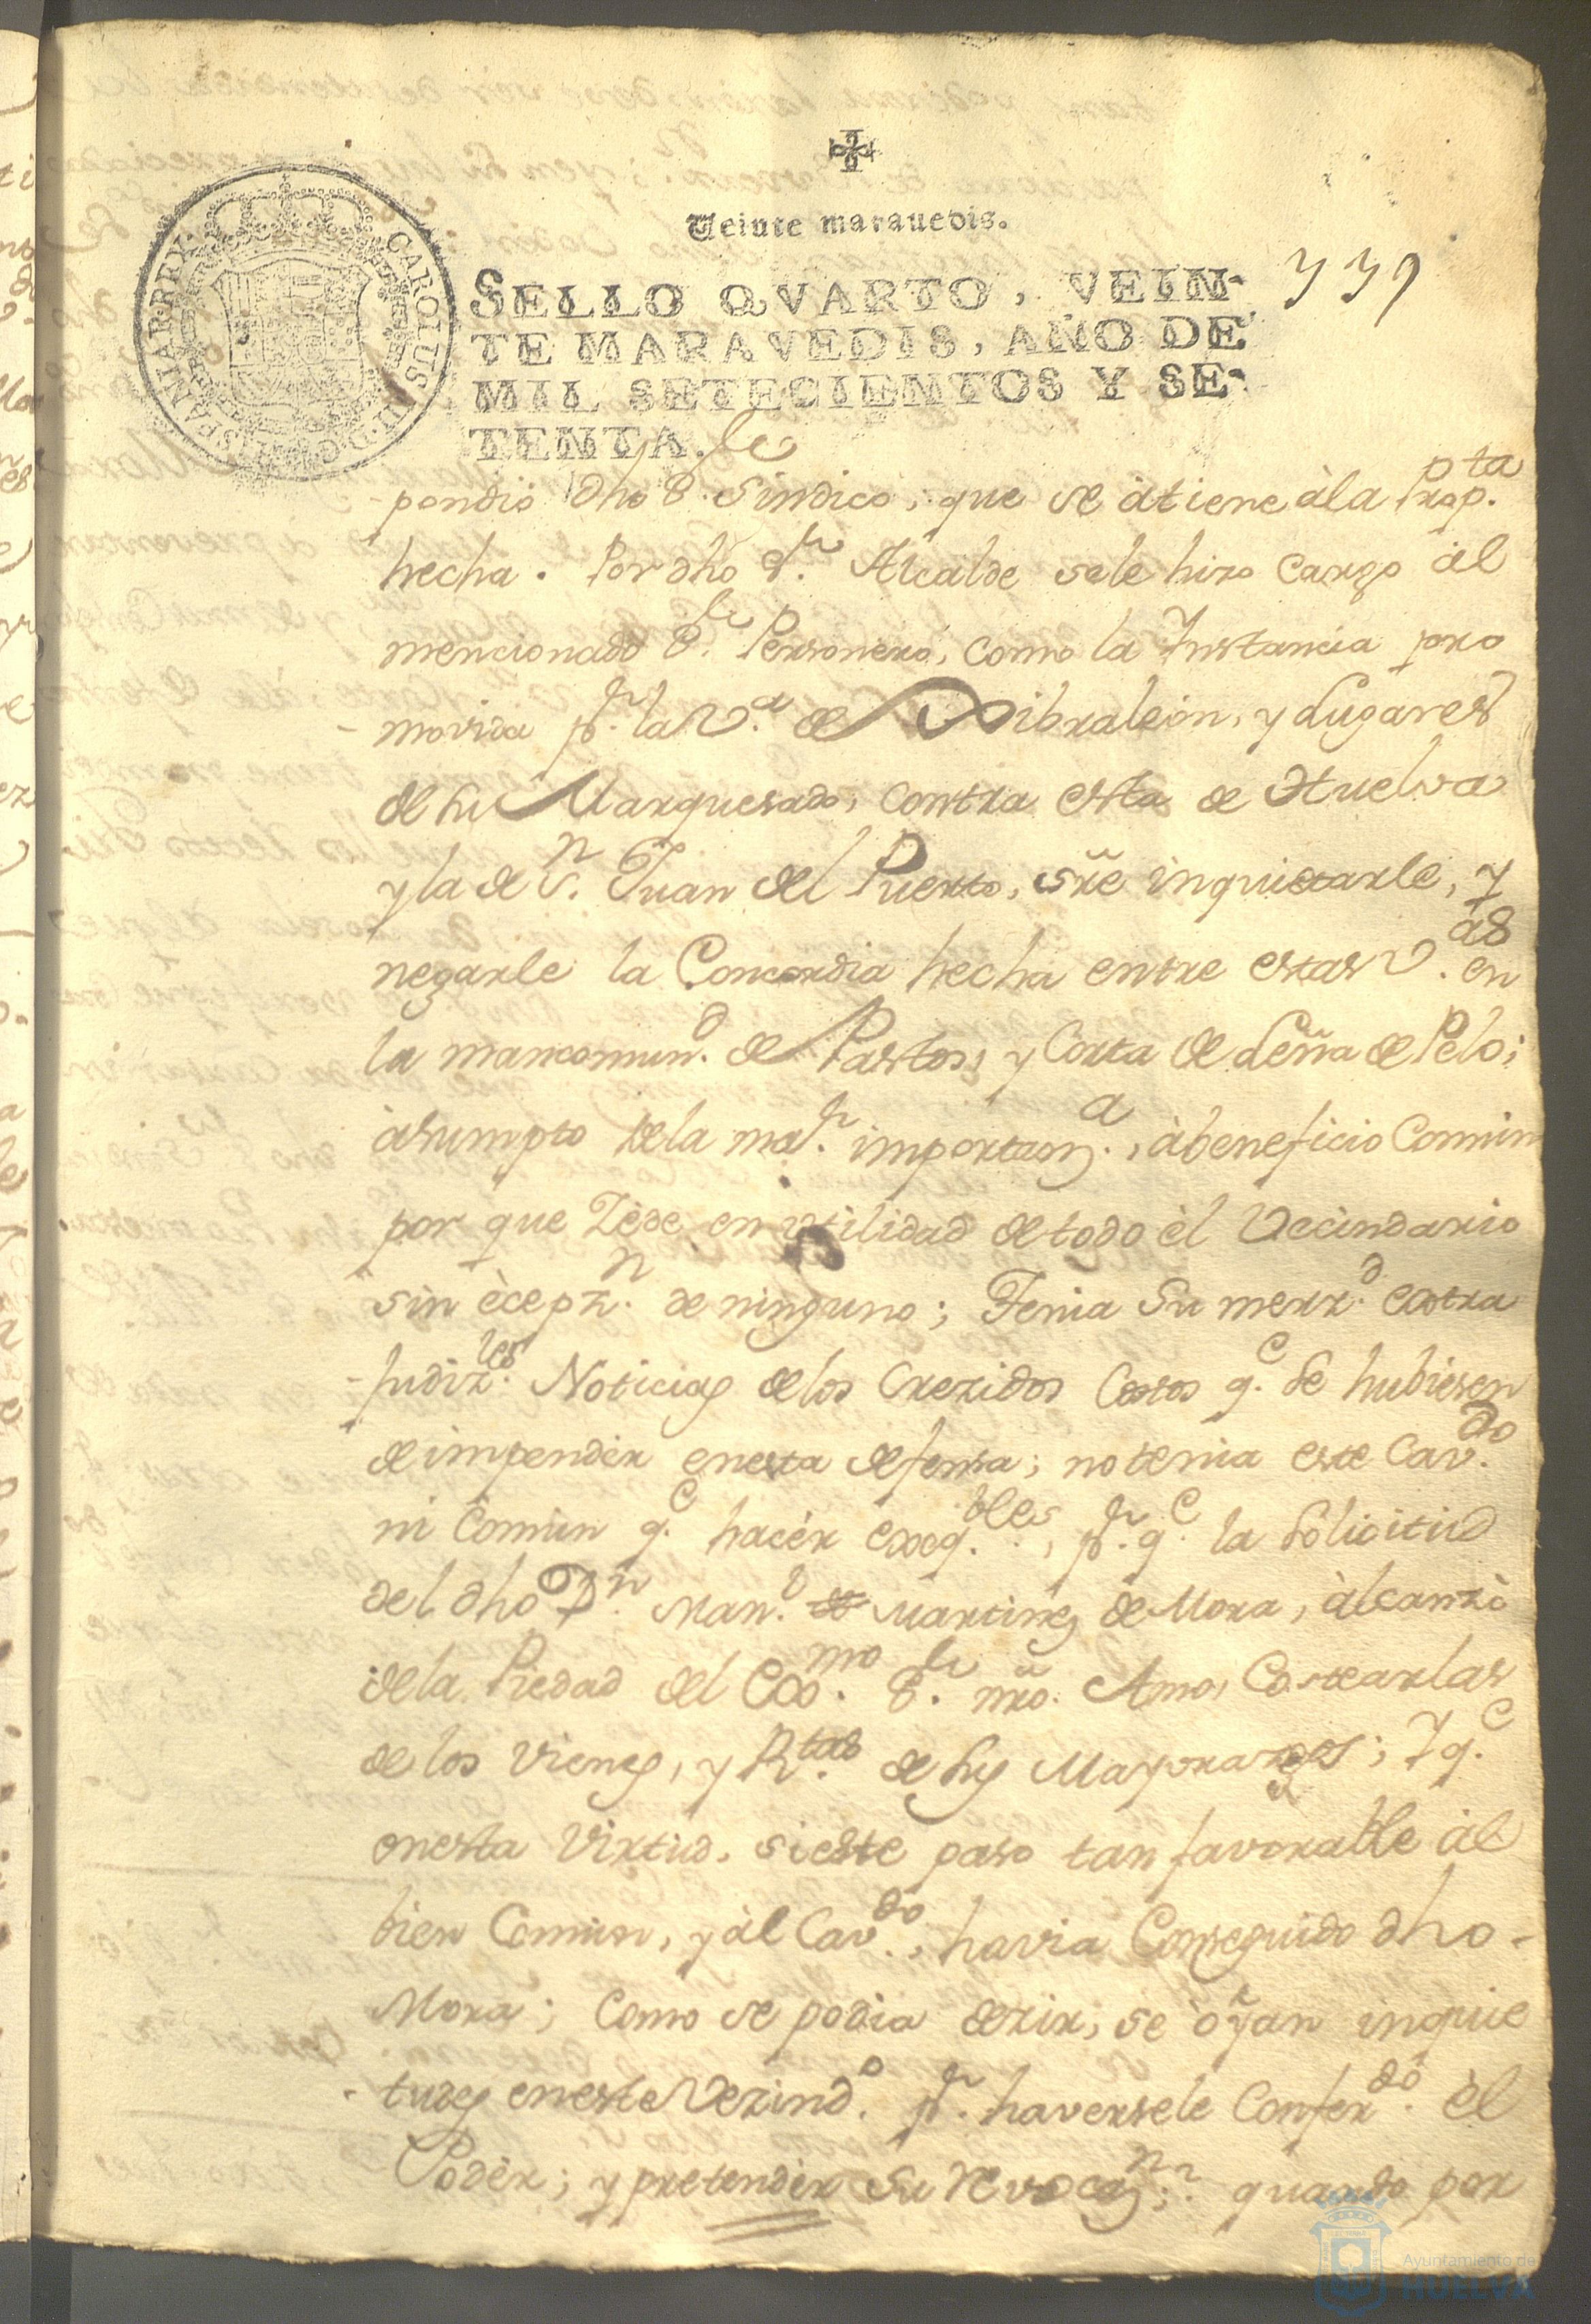 Veinte maravedis.
SELLO QVARTO, VEIN-
TE MARAVEDIS, AÑO DE
MIL SETECIENTOS Y SE-
TENTA.
CAROLUS III D G HISPANIAR REX
339
pondió dho Sr. Sindico, que se àtiene àla Prop.ta
hecha. Por dho Sr. Alcalde sele hizo Cargo àl
mencionado Sr. Personero, como la Instancia pro
movida pr. la Va. de Gibraleon, y Lugares
de su Marquesado, contra esta de Huelva
y la de Sn. Juan del Puerto, sre inquietarle, y
negarle la Concordia hecha entre estas V.as en
la mancomund. de Pastos, y Corta de Leña de Pelo;
àsumpto dela mar. importanza., àbeneficio Comun
por que Zède en vtilidad de todo èl Vecindario
sin ècepzn. de ninguno; Tenia Su merzd. extra
judiz.les Noticias delos Crezidos Costos q.e se hubiesen
deimpender enesta defensa; no tenia este Cav.do
ni Comun q.e hacér exeq.bles, pr. q.e la Solicitud
del dho Dn. Manl. Martinez de Mora, àlcanzò
dela Piedad del Exmo. Sr. nro. Amo, Costearlas
de los vienes, y Rtas. de sus Mayorazgos; Y q.e
enesta Virtud, si este paso tan favorable àl
bien Comun, y àl Cav.do, havia Conseguido dho
Mora; Como se podia dezir, se òyan inquie
tudes eneste Vezindo. pr. haversele Confer.do èl
Podér; y pretendér Su Revocazn.; quando por
Ayuntamiento de
HUELVA